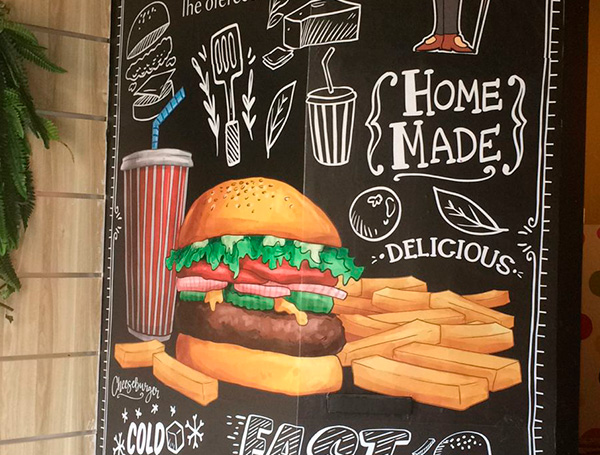 The
HOME
MADE
DELICIOUS
Cheeseburger
COLD
FAST